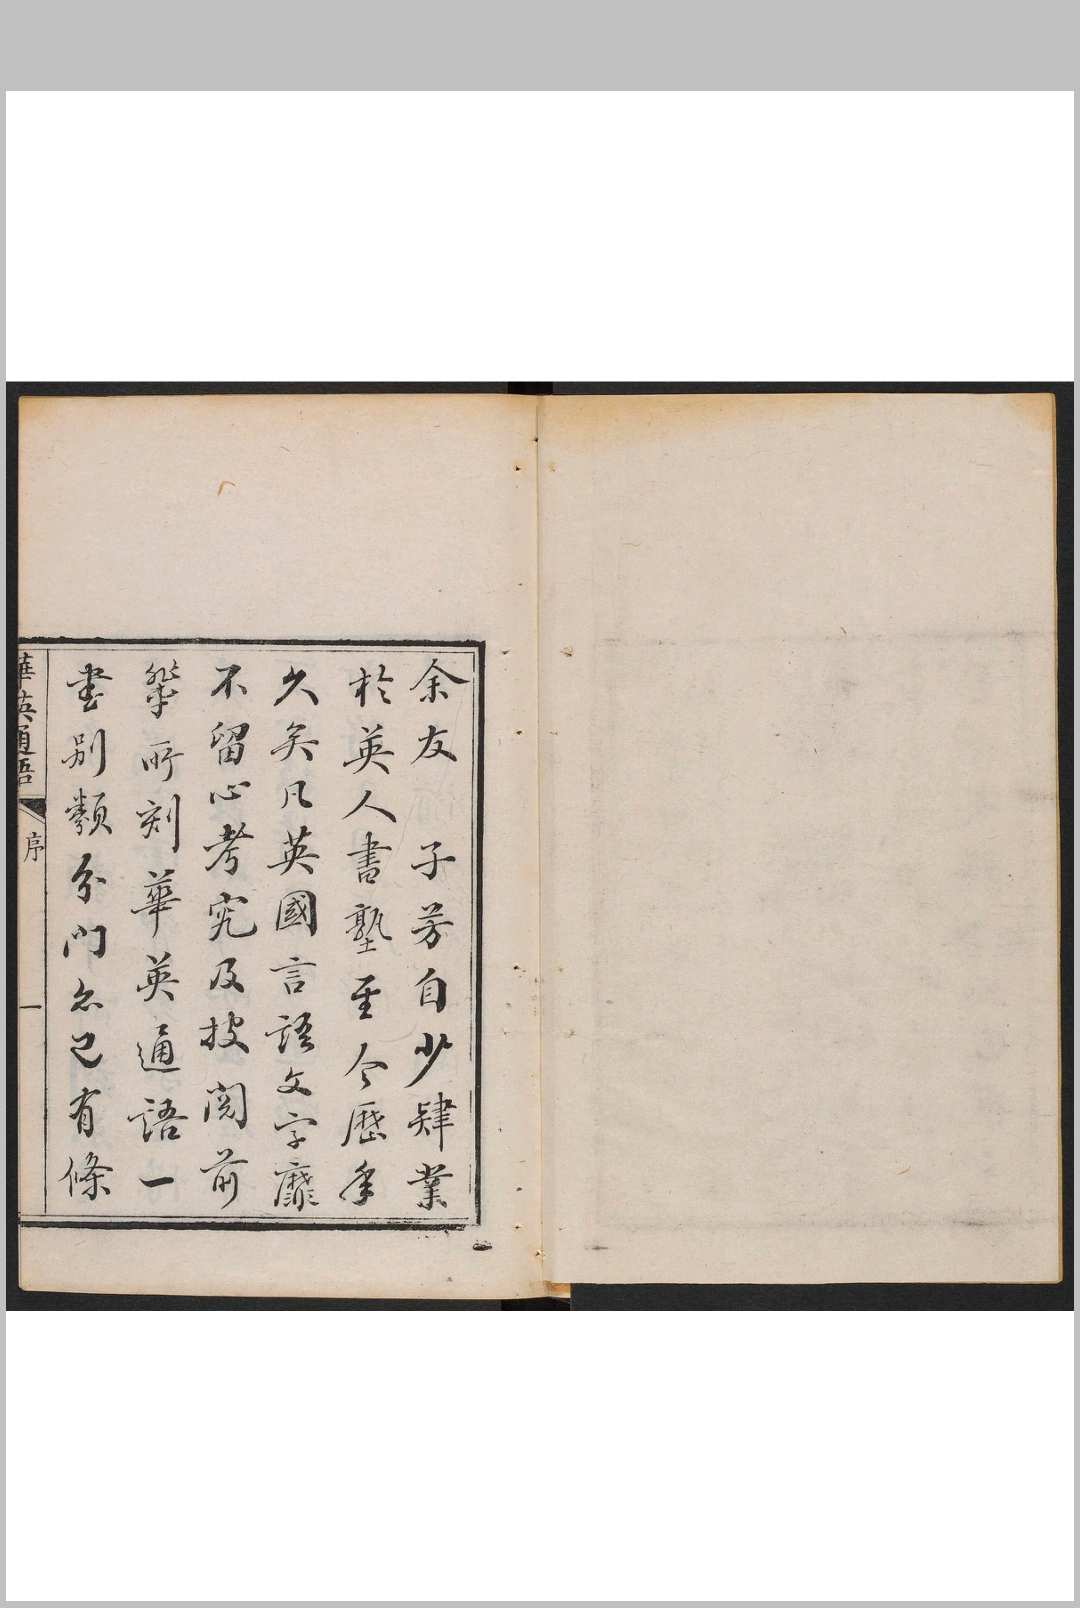 余友 子芳自少肄業
於英人書塾至今歷年
久矣凡英國言語文字靡
不留心考究及披閱前
輩所刻華英通語一
書別類分門亦已有條
華英通語 序 一